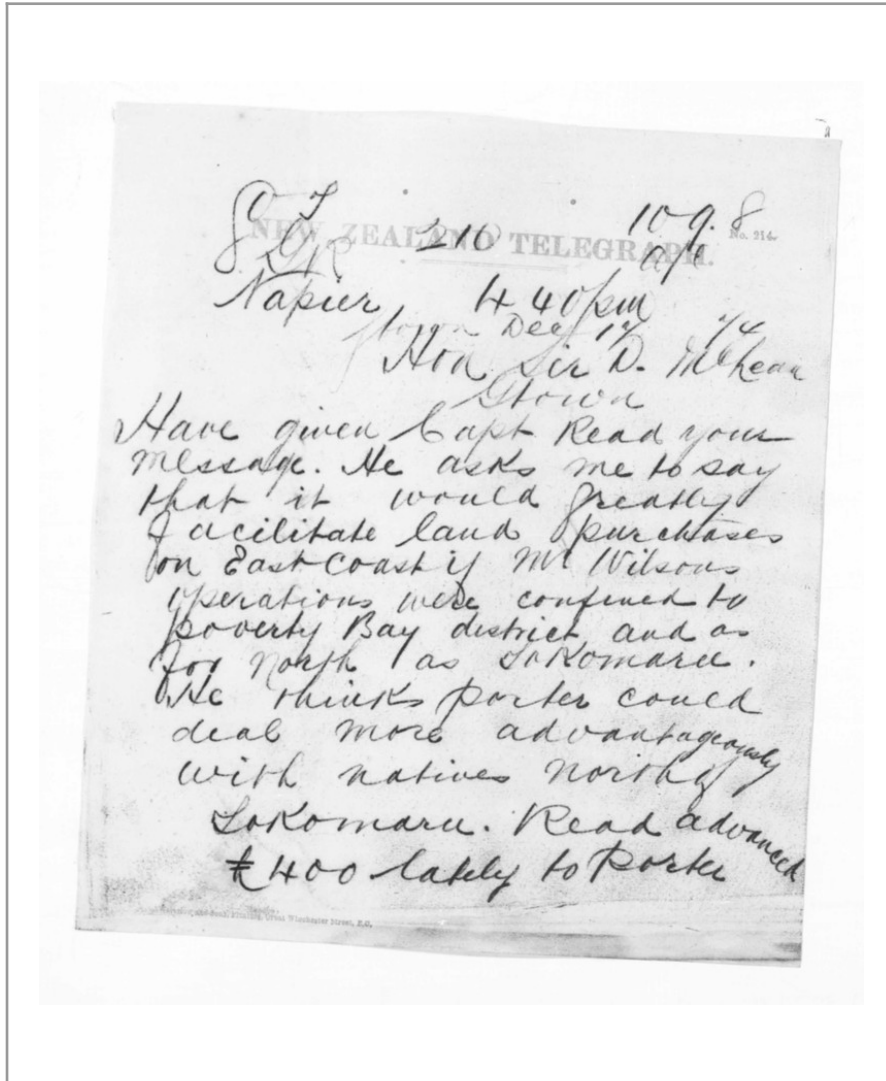 NEW ZEALAND TELEGRAPH.
No. 214.
210
109.8
Napier 4 40 pm
Dec 14 74
Hon Sir D. McLean
Gtown
Have given Capt Read your
message. He asks me to say
that it would greatly
facilitate land purchases
on East coast if Mr Wilsons
operations were confined to
poverty Bay district and as
far North as Tokomaru.
He thinks porter could
deal more advantageously
with natives north of
Tokomaru. Read advanced
£400 lately to Porter
Great Winchester Street, E.C.